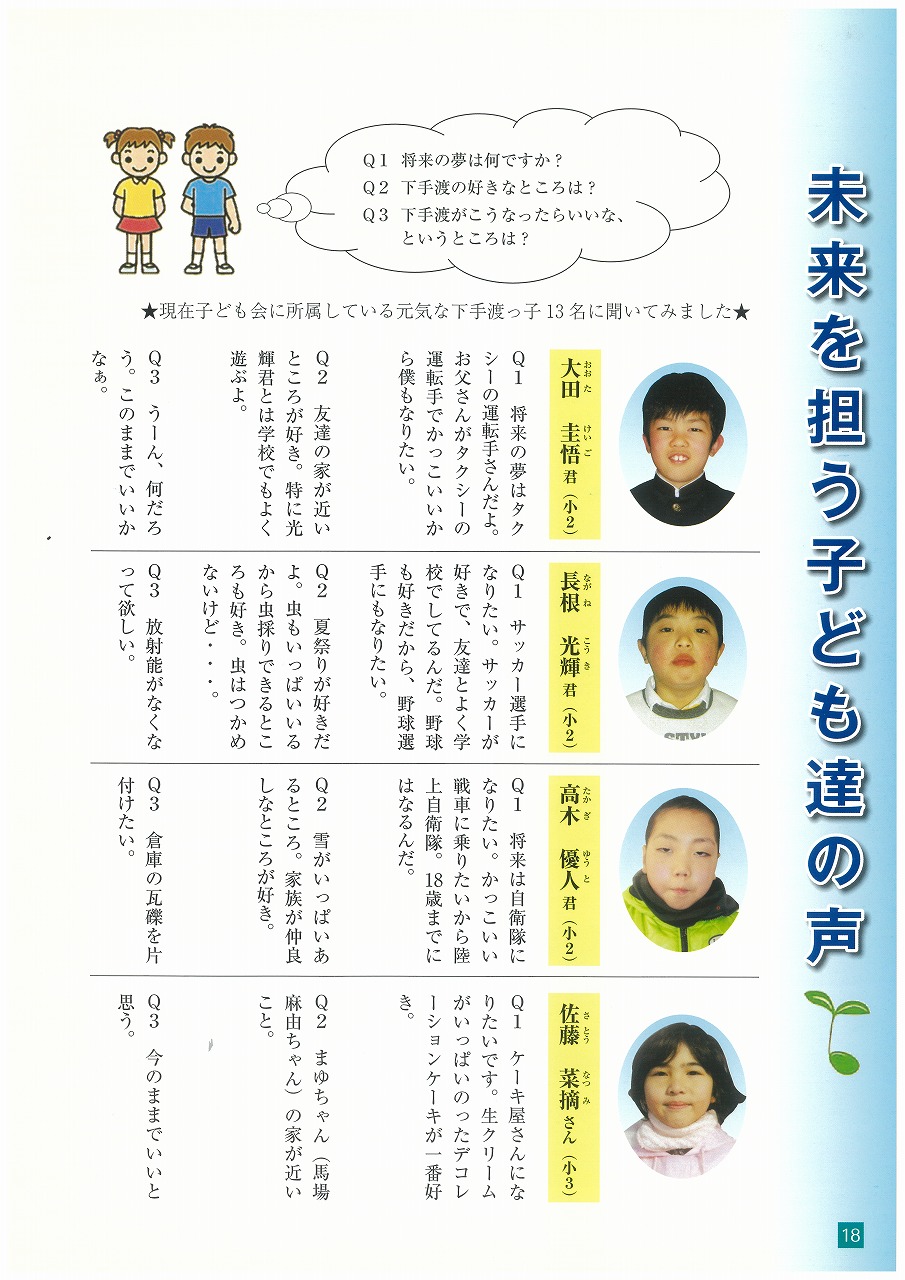 未来を担う子ども達の声
Q1 将来の夢は何ですか？
Q2 下手渡の好きなところは？
Q3 下手渡がこうなったらいいな、
というところは？
★現在子ども会に所属している元気な下手渡っ子13名に聞いてみました★
大田 圭悟君（小2）
おおた けいご
Q1 将来の夢はタク
シーの運転手さんだよ。
お父さんがタクシーの
運転手でかっこいいか
ら僕もなりたい。
Q2 友達の家が近い
ところが好き。特に光
輝君とは学校でもよく
遊ぶよ。
Q3 うーん、何だろ
う。このままでいいか
なぁ。
長根 光輝君（小2）
ながね こうき
Q1 サッカー選手に
なりたい。サッカーが
好きで、友達とよく学
校でしてるんだ。野球
も好きだから、野球選
手にもなりたい。
Q2 夏祭りが好きだ
よ。虫もいっぱいいる
から虫採りできるとこ
ろも好き。虫はつかめ
ないけど・・・。
Q3 放射能がなくな
って欲しい。
高木 優人君（小2）
たかぎ ゆうと
Q1 将来は自衛隊に
なりたい。かっこいい
戦車に乗りたいから陸
上自衛隊。18歳までに
はなるんだ。
Q2 雪がいっぱいあ
るところ。家族が仲良
しなところが好き。
Q3 倉庫の瓦礫を片
付けたい。
佐藤 菜摘さん（小3）
さとう なつみ
Q1 ケーキ屋さんにな
りたいです。生クリーム
がいっぱいのったデコレ
ーションケーキが一番好
き。
Q2 まゆちゃん（馬場
麻由ちゃん）の家が近い
こと。
Q3 今のままでいいと
思う。
18